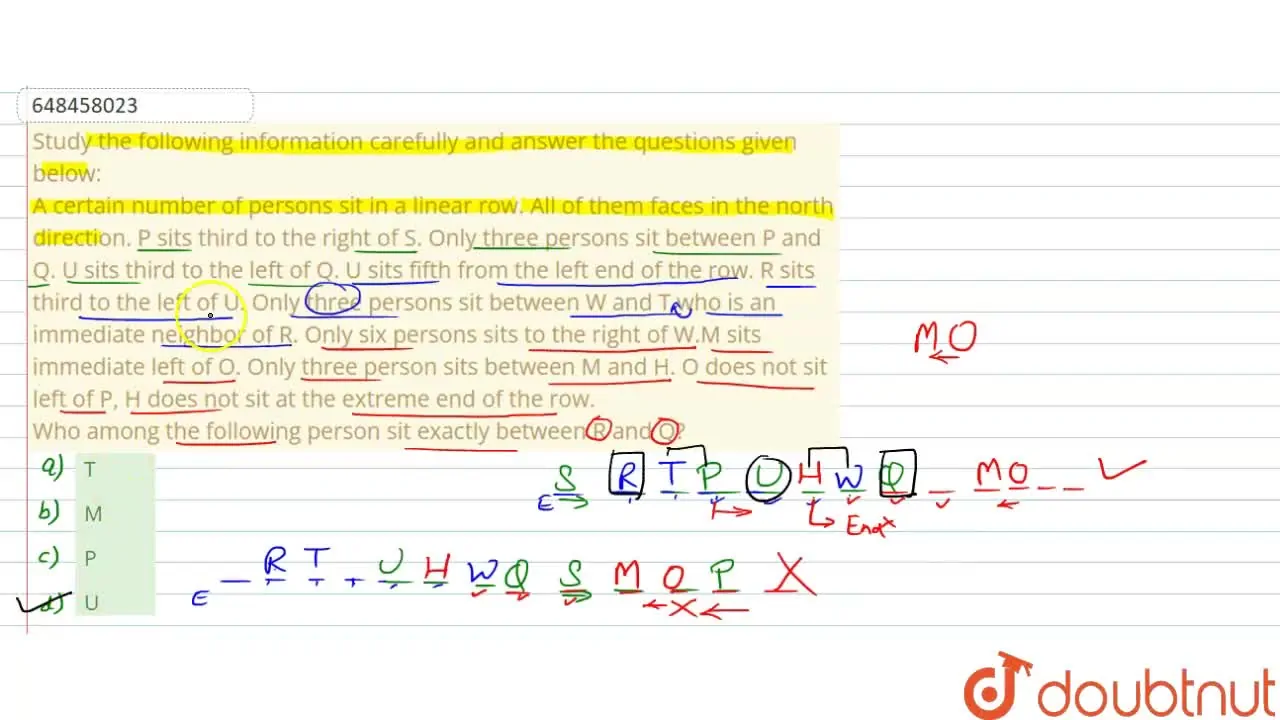 648458023
Study the following information carefully and answer the questions given
below:
A certain number of persons sit in a linear row. All of them faces in the north
direction. P sits third to the right of S. Only three persons sit between P and
Q. U sits third to the left of Q. U sits fifth from the left end of the row. R sits
third to the left of U. Only three persons sit between W and T who is an
immediate neighbor of R. Only six persons sits to the right of W.M sits
immediate left of O. Only three person sits between M and H. O does not sit
left of P, H does not sit at the extreme end of the row.
Who among the following person sit exactly between R and Q?
M O
a) T
b) M
c) P
d) U
S R T P U H W Q _ M O _ _
E
End x
_ R T _ U H W Q S M O P X
E
doubtnut